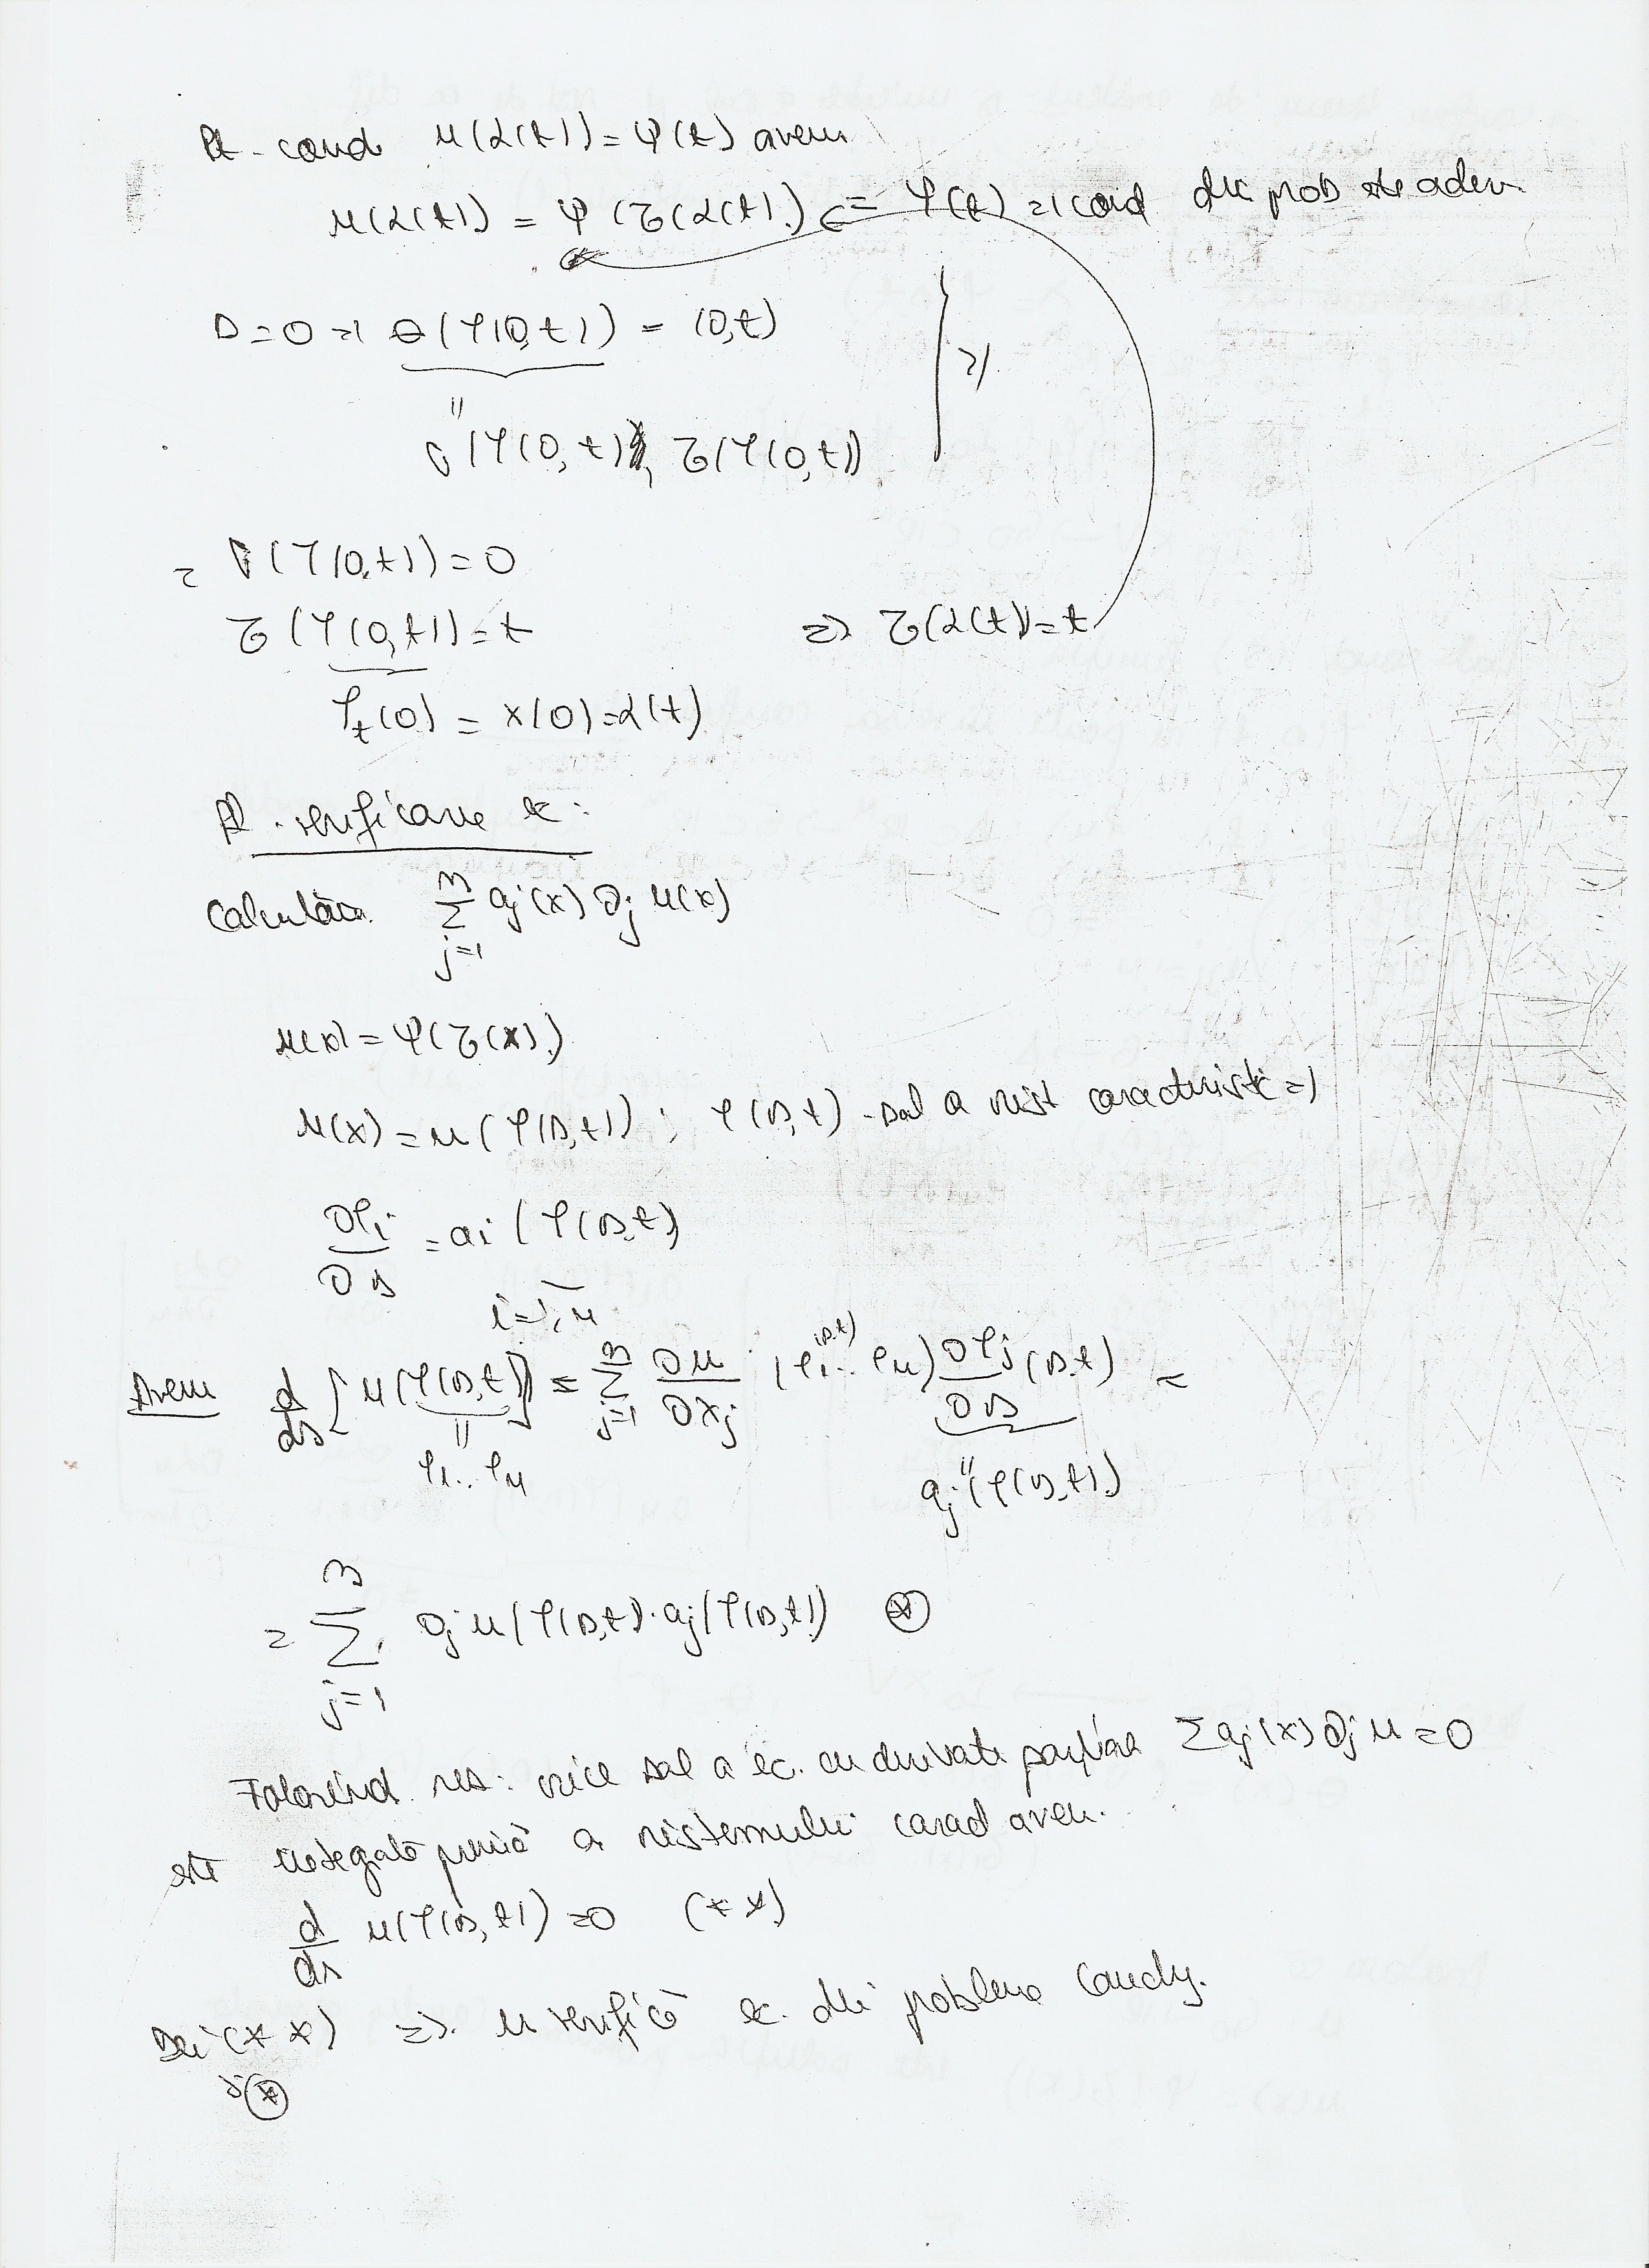 Pt. cond u(α(t)) = ψ(t) avem
u(α(t)) = ψ(τ(α(t))) = ψ(t) => cond din prob este adev.
s=0 => θ(φ(0,t)) = (0,t)
"
σ(φ(0,t)), τ(φ(0,t))
=> σ(φ(0,t)) = 0
τ(φ(0,t)) = t => τ(α(t)) = t
φ_t(0) = x(0) = α(t)
Pt. verificare ec:
Calculăm ∑_{j=1}^{n} a_j(x) ∂_j u(x)
u(x) = ψ(τ(x))
u(x) = u(φ(s,t)); φ(s,t) - sol a sist caracteristic =>
∂φ_i/∂s = a_i(φ(s,t))
i=1,n
Avem d/ds [u(φ(s,t))] = ∑_{j=1}^{n} ∂u/∂x_j (φ_1..φ_n)(s,t) ∂φ_j/∂s (s,t) =
"
φ_1..φ_n
" a_j(φ(s,t))
= ∑_{j=1}^{n} ∂_j u(φ(s,t)) · a_j(φ(s,t)) ⊛
Folosind rez: orice sol a ec. cu derivate parțiale ∑ a_j(x) ∂_j u = 0
este integrală primă a sistemului caract avem.
d/ds u(φ(s,t)) = 0 (**)
Din (**) => u verifică ec. din problema Cauchy.
și ⊛